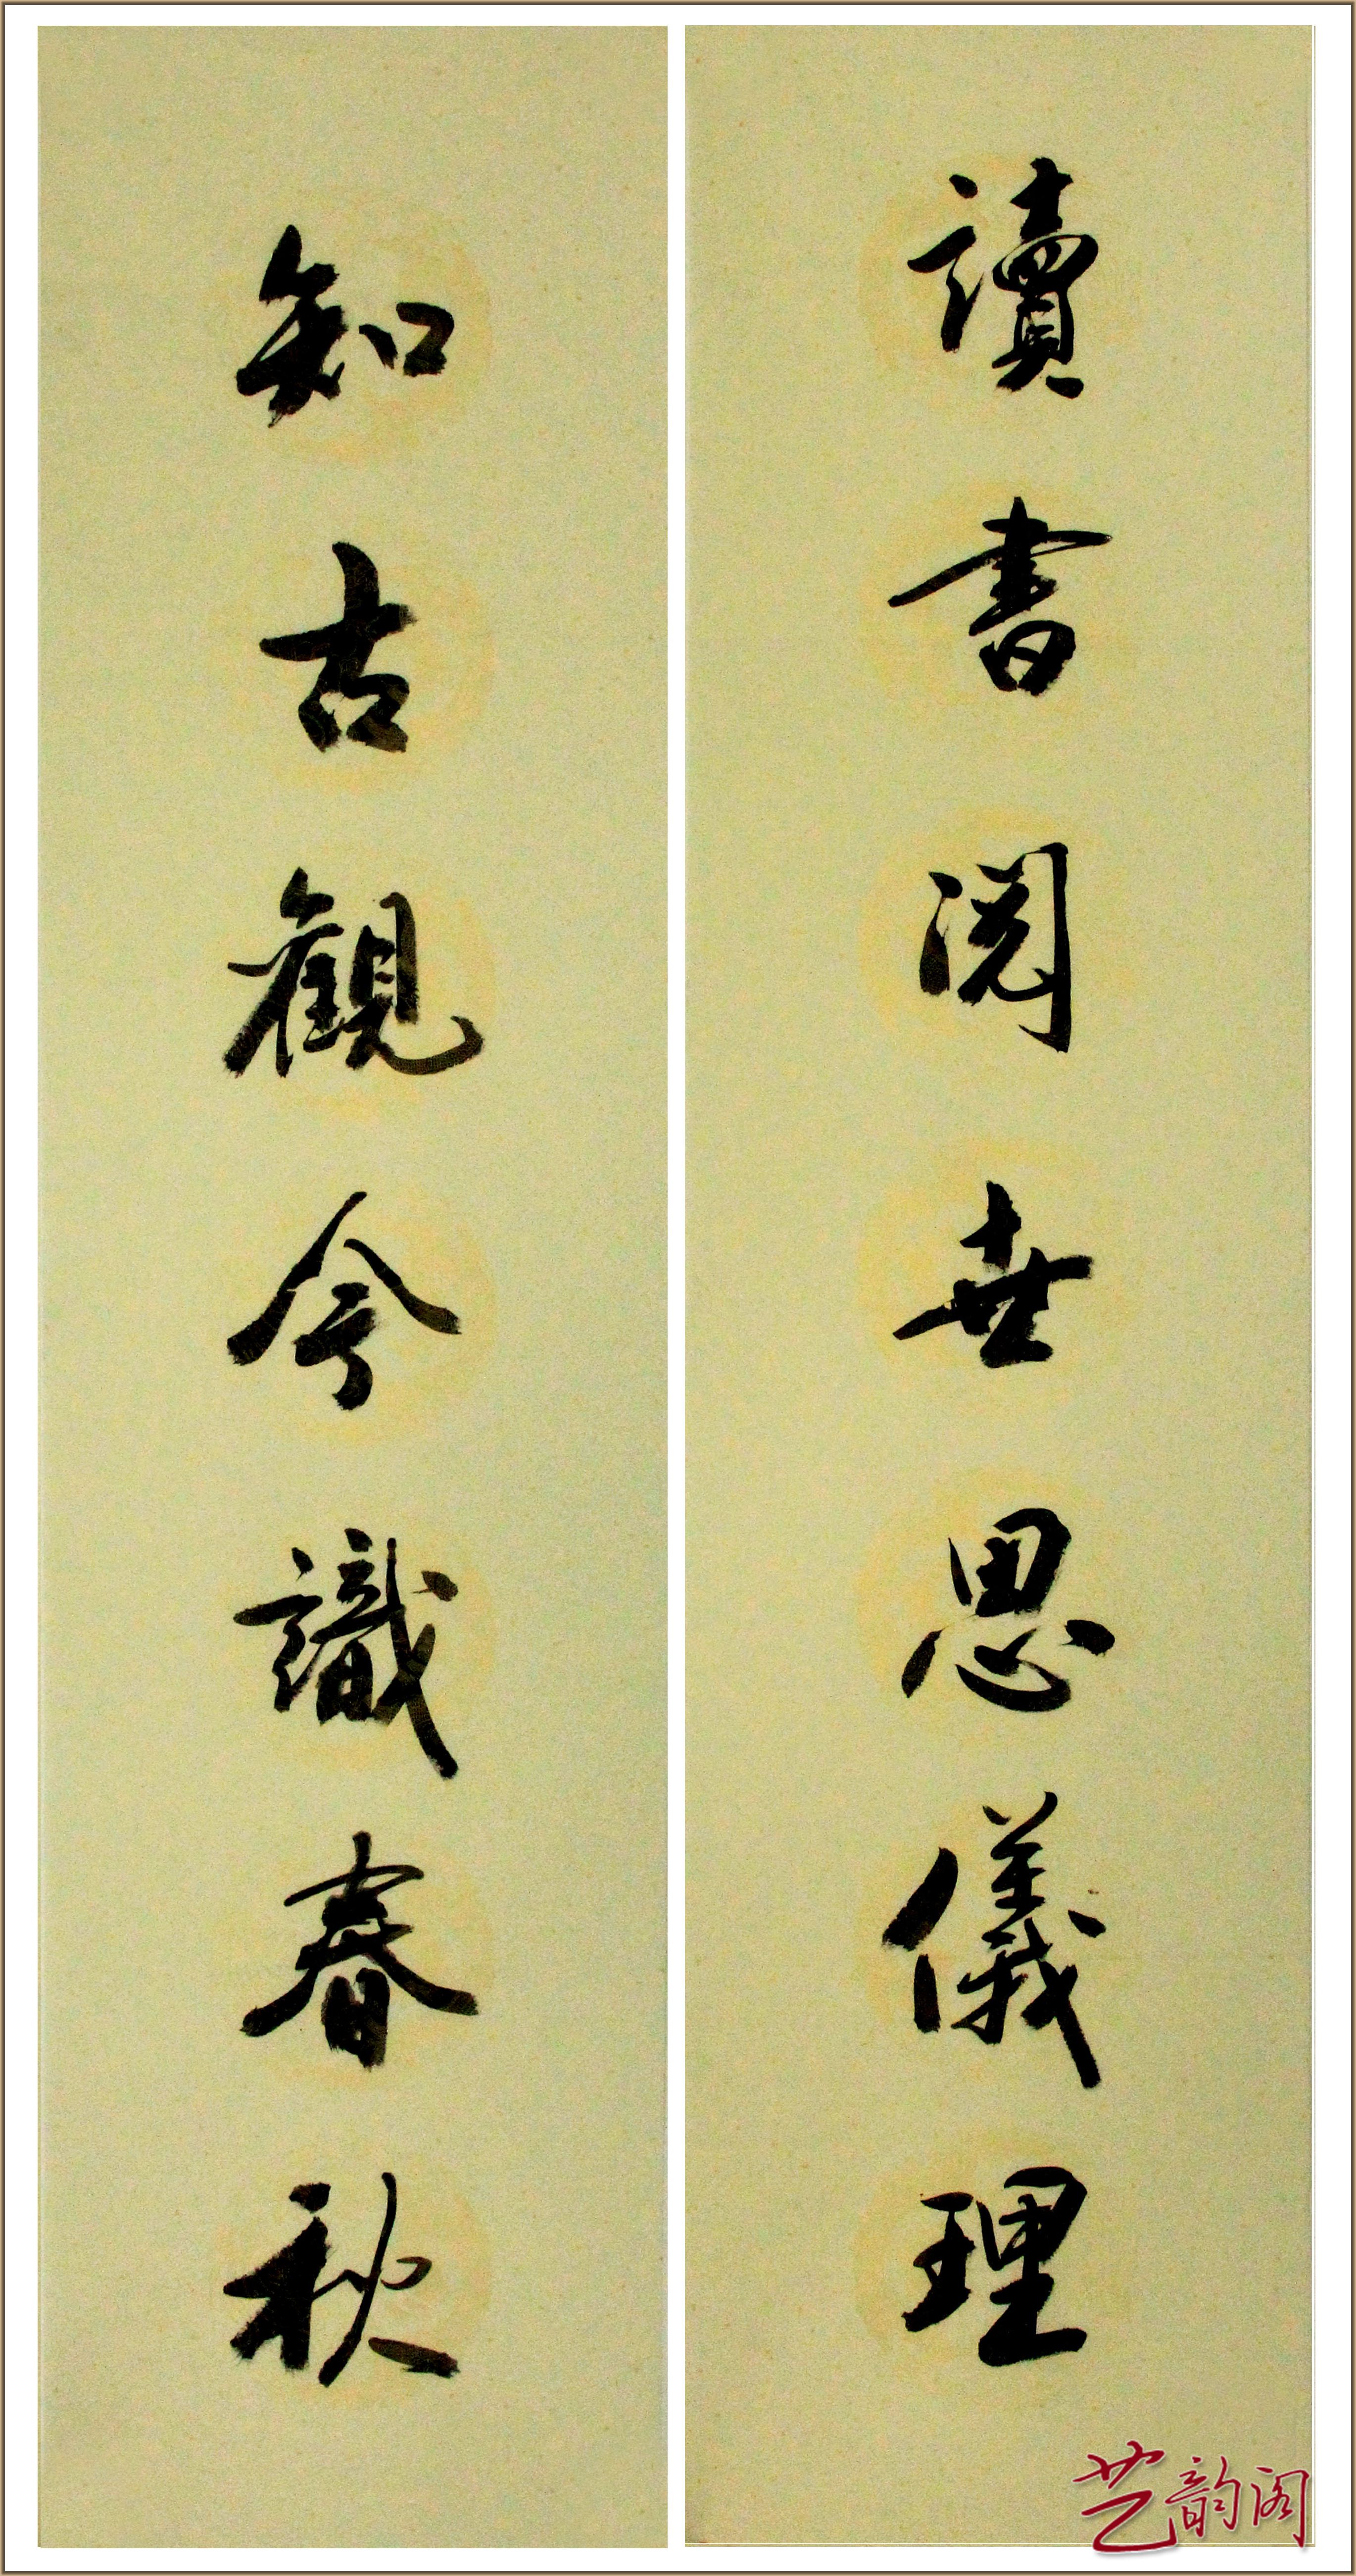 讀書閱世思儀理
知古觀今識春秋
艺韵阁